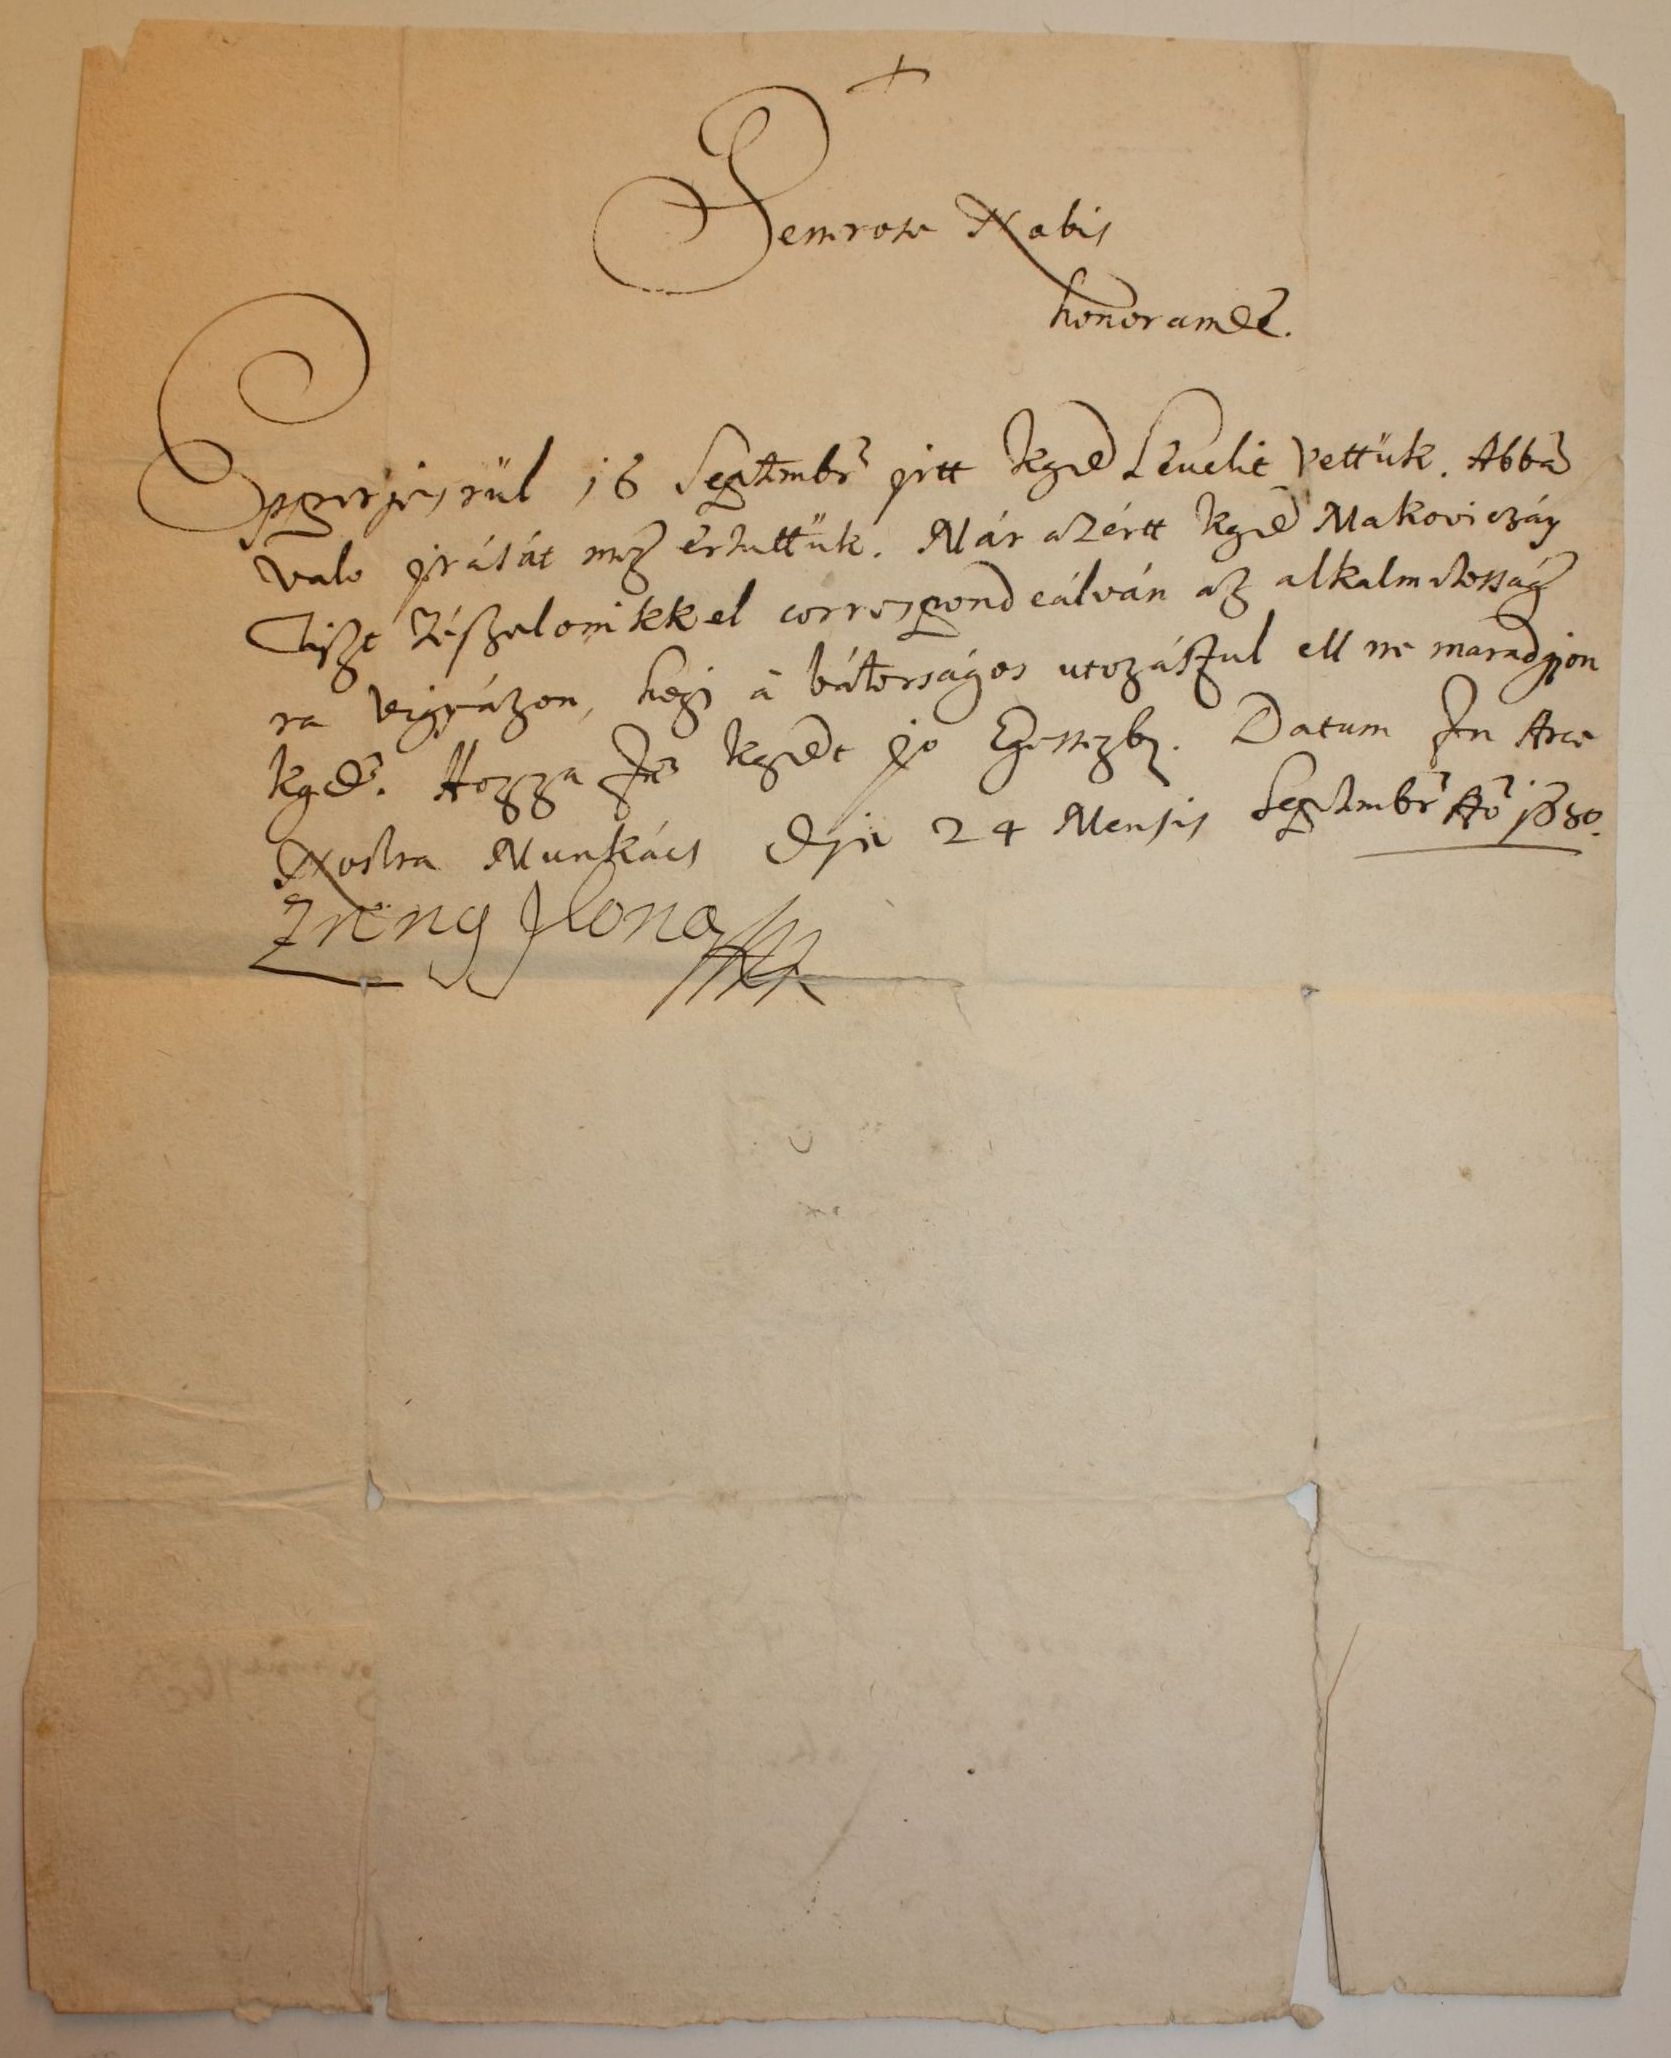 Generose Nobis
honorande.
Epperjesrül 16 Septembr jrtt kgld Leuelit Vettük. Abba
valo jrását meg értettük. Már azértt kgld Makoviczay
Tiszt correspondeálván az alkalmatosság
ra vigyázon, hogj a bátorságos utozástul ell ne maradgyon
kgld. Hozza Jn kgldt jo Egessegb. Datum Jn Arce
Nostra Munkács Die 24 Mensis Septembr Ao 1680.
Zrini Ilona